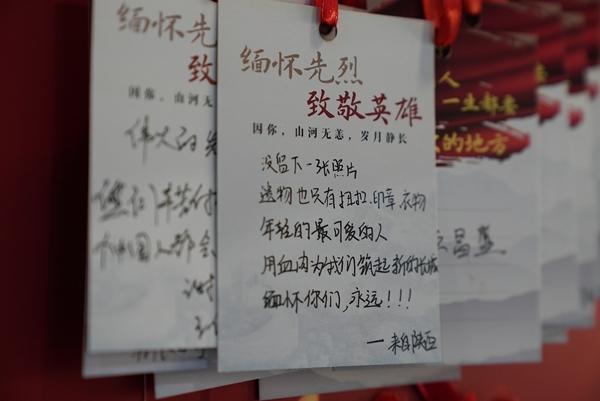 缅怀先烈
致敬英雄
因你，山河无恙，岁月静长
没留下一张照片
遗物也只有纽扣、印章、衣物
年轻的最可爱的人
用血肉为我们筑起新的长城
缅怀你们，永远！！！
— 来自陕西
缅怀先
致
因你，山河无
伟大的
中国人都会
人
一生都要
的地方